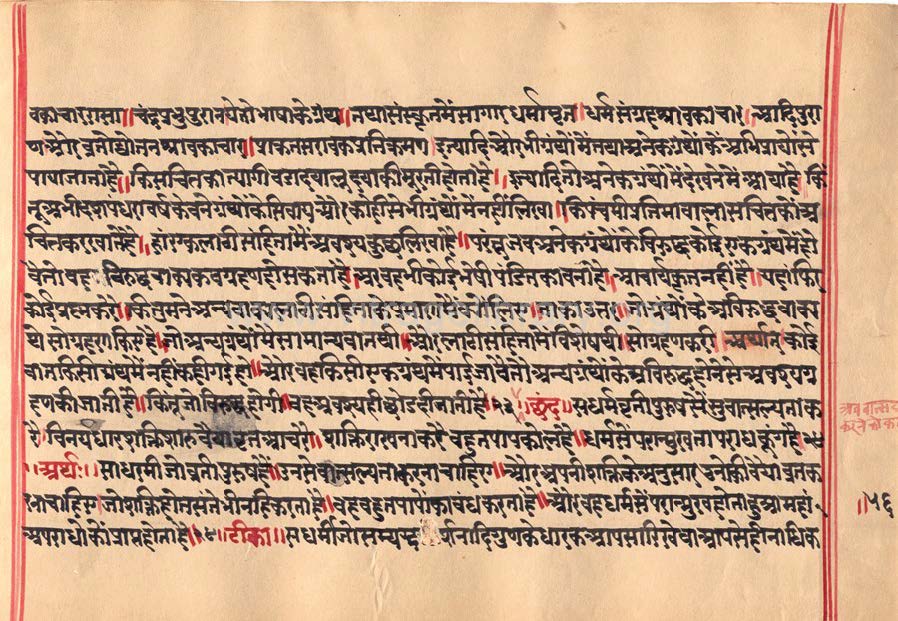 वकाचाररासा॥ चंद्रप्रभुपुराण येतो भाषाके ग्रंथ॥ तथा संस्कृतमें सागार धर्मामृत॥ धर्मसंग्रहश्रावकाचार॥ आदिपुरा
ण और व्रतोद्योतनश्रावकाचार॥ प्राकृत सरावकप्रतिक्रमण इत्यादि और भी ग्रंथोंमें तथा अनेक ग्रंथोंके अभिप्रायोंसे
पाया जाता है॥ कि सचित्तका त्यागी बडा दयालू दयाकी मूरती होता है॥ इत्यादि तो अनेक ग्रंथोंमें देखनेमें आया है किं
तू अभी दशपंधरा वर्षके बने ग्रंथोंके सिवाय और कोईसे भी ग्रंथोंमें नहीं लिखा॥ कि पंचमी प्रतिमावाला सचित्तकों अ
चित्त कर खाता है॥ हां लाटी संहितामें अवश्य कुछ लिखा है॥ परंतु जब अनेक ग्रंथोंके विरुद्ध कोई एक ग्रंथमें हो
वै तो वह विरुद्ध वाक्य कब ग्रहण हो सकता है॥ अर वह भी कोई भेषी पंडितका बनाया है॥ आचार्यकृत नहीं है॥ यहां फि
कोई प्रश्न करे॥ कि तुमने अन्य लाटी संहिताके प्रमाण में क्यों लिए॥ ताका उत्तर॥ जो ग्रंथोंके अविरुद्ध वाक्य
थे सो ग्रहण किए है॥ जो अन्य ग्रंथोंमें सामान्य बात थी॥ और लाटी संहितामें विशेष थी॥ सो ग्रहण करी॥ अर्थात कोई
बात किसी ग्रंथमें नहीं कही गई हो॥ और वह किसी एक ग्रंथमें पाई जावै तो अन्य ग्रंथोंके अविरुद्ध होनेसे अवश्य ग्र
हण की जाती है॥ किंतू जो विरुद्ध होगी॥ वह अवश्य ही छोड दी जाती है॥ छंद॥ सधर्म वृती पुरुषसें सुवात्सल्यता क
रै॥ विनय धार शक्ति शारु वैयावृत्त आचरै॥ शक्ति राख ना करै बहुत पाप को लहै॥ धर्मसें परान्मुख ना पराध कूं गहै॥
॥अर्थ॥ साधरमी जो व्रती पुरुष है॥ उनसे वात्सल्यता करना चाहिए॥ और अपनी शक्तिके अनुसार उनोकी वैयाव्रत क
रना चाहिए॥ जो शक्ति होत संते भी नहि करता है॥ वह बहुत पापोंका बंध करता है॥ और वह धर्मसें परान्मुख होता हुआ महां
अपराधोंकों प्राप्त होता है॥ टीका॥ सधर्मी जो सम्यग्दर्शनादि गुणके धारक आप सारिखे वा आपसे हीनाधिक
॥५६